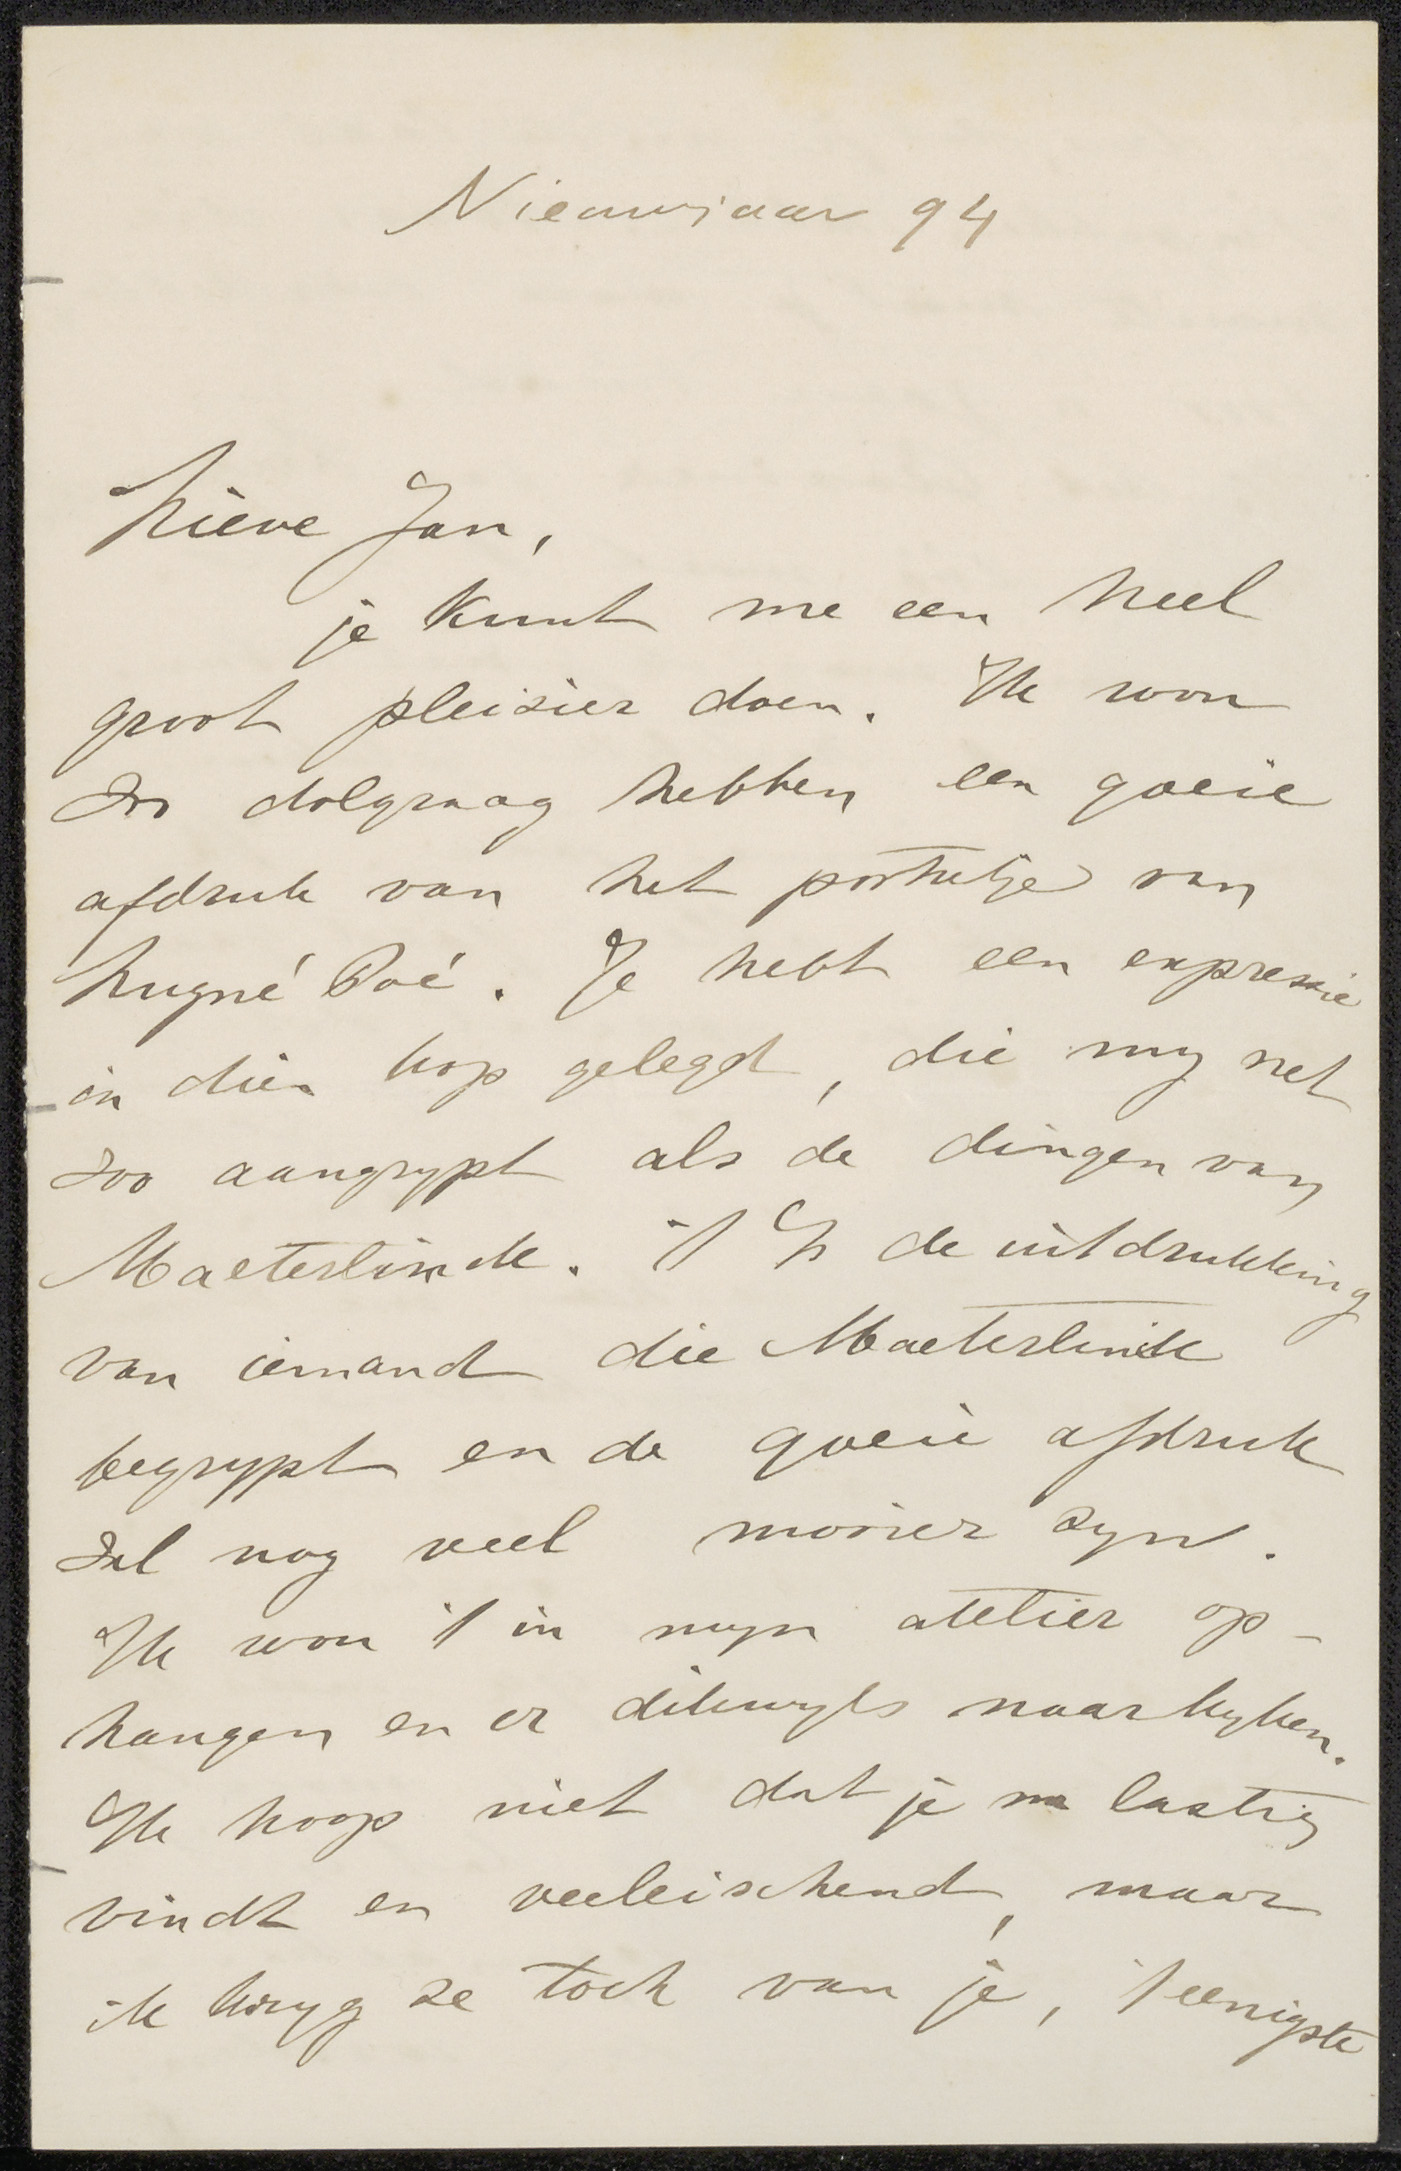 Nieuwjaar 94
Lieve Jan,
je kunt me een heel
groot pleisier doen. Ik wou
zoo dolgraag hebben een goeie
afdruk van het portretje van
Lugné Poé. Je hebt een expressie
in dien kop gelegd, die my net
zoo aangrypt als de dingen van
Maeterlinck. 't Is de uitdrukking
van iemand die Maeterlinck
begrypt en de goeie afdruk
zal nog veel mooier zyn.
Ik wou 't in myn atelier op-
hangen en er dikwyls naar kyken.
Ik hoop niet dat je me lastig
vindt en veeleischend, maar
ik kryg ze toch van je, 't eenigste